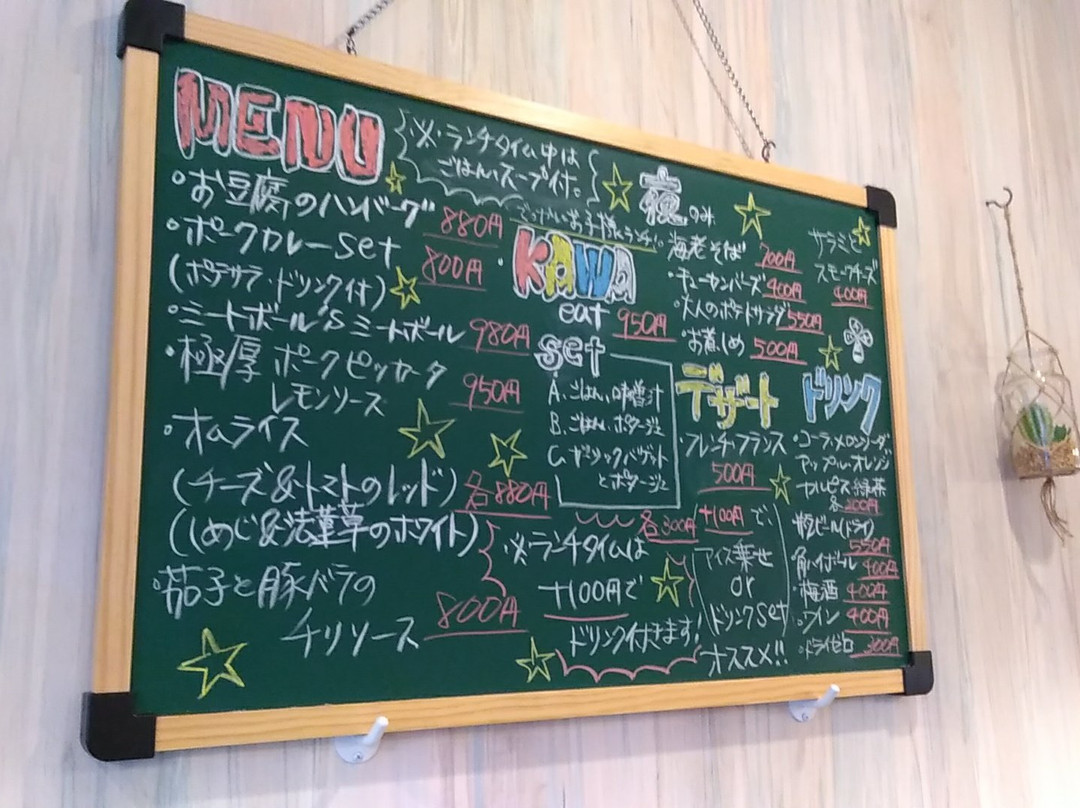 MENU
※・ランチタイム中は
ごはん、スープ付。
・お豆腐のハンバーグ 880円
・ポークカレーset 800円
(ポテサラ・ドリンク付)
・ミートボール'Sミートボール 980円
・極厚 ポークピッカータ
レモンソース 950円
・オムライス
(チーズ&トマトのレッド) 各880円
(しめじ&法蓮草のホワイト)
・茄子と豚バラの
チリソース 800円
でっかいお子様ランチ!
・KAWA
eat 950円
set
A. ごはん、味噌汁
B. ごはん、ポタージュ
C. ガーリックバゲット
とポタージュ
各300円
※ランチタイムは
+100円で
ドリンク付きます!
夜のみ
海老そば 700円
・チューカンバーズ 400円
・大人のポテトサラダ 550円
・お煮しめ 500円
サラミと
スモークチーズ
400円
デザート
・フレンチフランス
500円
+100円で、
アイス乗せ
or
ドリンクset
オススメ!!
ドリンク
・コーラ、メロンソーダ
アップル、オレンジ
カルピス、緑茶
各200円
・瓶ビール(ドライ)
550円
・角ハイボール 400円
・梅酒 400円
・ワイン 400円
・ドライゼロ 300円